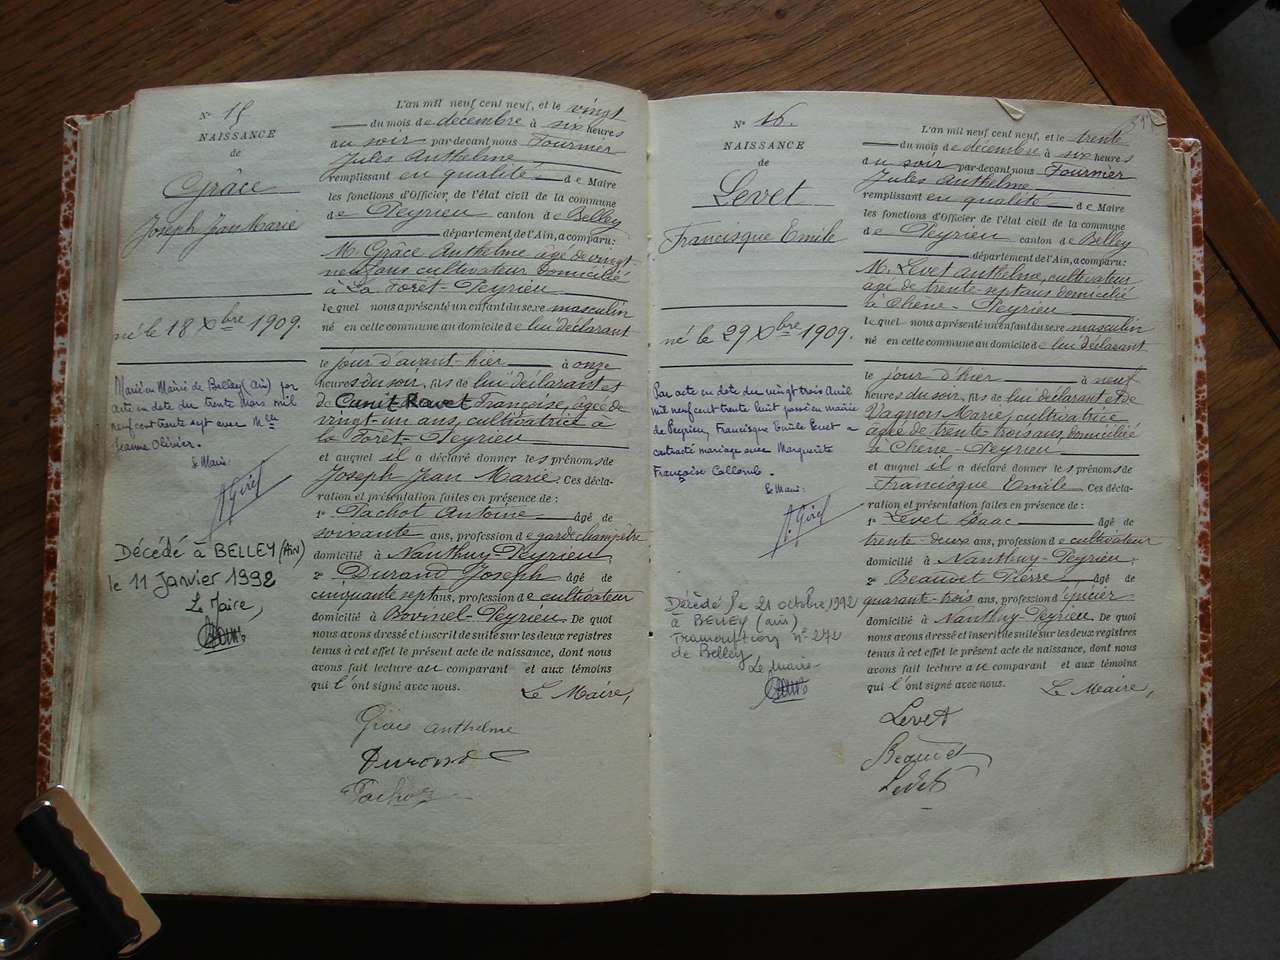 N° 15
NAISSANCE
de
Grâce
Joseph Jean Marie
né le 18 Xbre 1909.
Marié en Mairie de Belley (Ain) par
acte en date du trente Mars mil
neuf cent trente sept avec Mlle
Jeanne Olivier.
Le Maire:
Décédé à BELLEY (Ain)
le 11 Janvier 1992
Le Maire,
L'an mil neuf cent neuf, et le vingt
du mois de décembre à six heures
du soir par-devant nous Fournier
Jules Anthelme
remplissant en qualité de Maire
les fonctions d'Officier de l'état civil de la commune
de Peyrieu canton de Belley
département de l'Ain, a comparu:
M. Grâce Anthelme âgé de vingt
neuf ans cultivateur domicilié
à La Forêt-Peyrieu
lequel nous a présenté un enfant du sexe masculin
né en cette commune au domicile de lui déclarant
le jour d'avant-hier à onze
heures du soir, fils de lui déclarant et
de Cunit Ravet Françoise, âgée de
vingt-un ans, cultivatrice à
la Foret-Peyrieu
et auquel il a déclaré donner les prénoms de
Joseph Jean Marie. Ces décla-
ration et présentation faites en présence de :
1° Pachot Antoine âgé de
soixante ans, profession de garde champêtre
domicilié à Nanthuy-Peyrieu,
2° Durand Joseph âgé de
cinquante sept ans, profession de cultivateur
domicilié à Bovinel-Peyrieu. De quoi
nous avons dressé et inscrit de suite sur les deux registres
tenus à cet effet le présent acte de naissance, dont nous
avons fait lecture au comparant et aux témoins
qui l'ont signé avec nous. Le Maire,
Grâce Anthelme
Durand
Pachot
N° 16.
NAISSANCE
de
Levet
Francisque Emile
né le 29 Xbre 1909.
Par acte en date du vingt trois Avril
mil neuf cent trente huit passé en mairie
de Peyrieu, Francisque Emile Levet a
contracté mariage avec Marguerite
Françoise Collomb.
Le Maire:
Décédé le 21 octobre 1992
à BELLEY (ain)
Transcription n° 272
de Belley
Le Maire
L'an mil neuf cent neuf, et le trente
du mois de décembre à six heures
du soir par-devant nous Fournier
Jules Anthelme
remplissant en qualité de Maire
les fonctions d'Officier de l'état civil de la commune
de Peyrieu canton de Belley
département de l'Ain, a comparu:
M. Levet Anthelme, cultivateur
âgé de trente-sept ans domicilié
à Chêne-Peyrieu
lequel nous a présenté un enfant du sexe masculin
né en cette commune au domicile de lui déclarant
le jour d'hier à neuf
heures du soir, fils de lui déclarant et de
Vagnon Marie, cultivatrice
âgée de trente trois ans, domicilié
à Chêne-Peyrieu
et auquel il a déclaré donner les prénoms de
Francisque Emile. Ces décla-
ration et présentation faites en présence de :
1° Levet Isaac âgé de
trente-deux ans, profession de cultivateur
domicilié à Nanthuy-Peyrieu,
2° Beaudet Pierre âgé de
quarante-trois ans, profession d'épicier
domicilié à Nanthuy-Peyrieu. De quoi
nous avons dressé et inscrit de suite sur les deux registres
tenus à cet effet le présent acte de naissance, dont nous
avons fait lecture au comparant et aux témoins
qui l'ont signé avec nous. Le Maire,
Levet
Levet